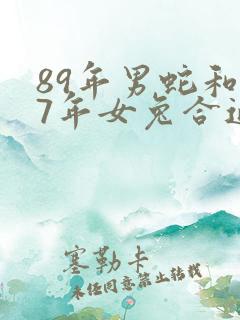 89年男蛇和
7年女兔合
塞勒卡
未经同意禁止转载